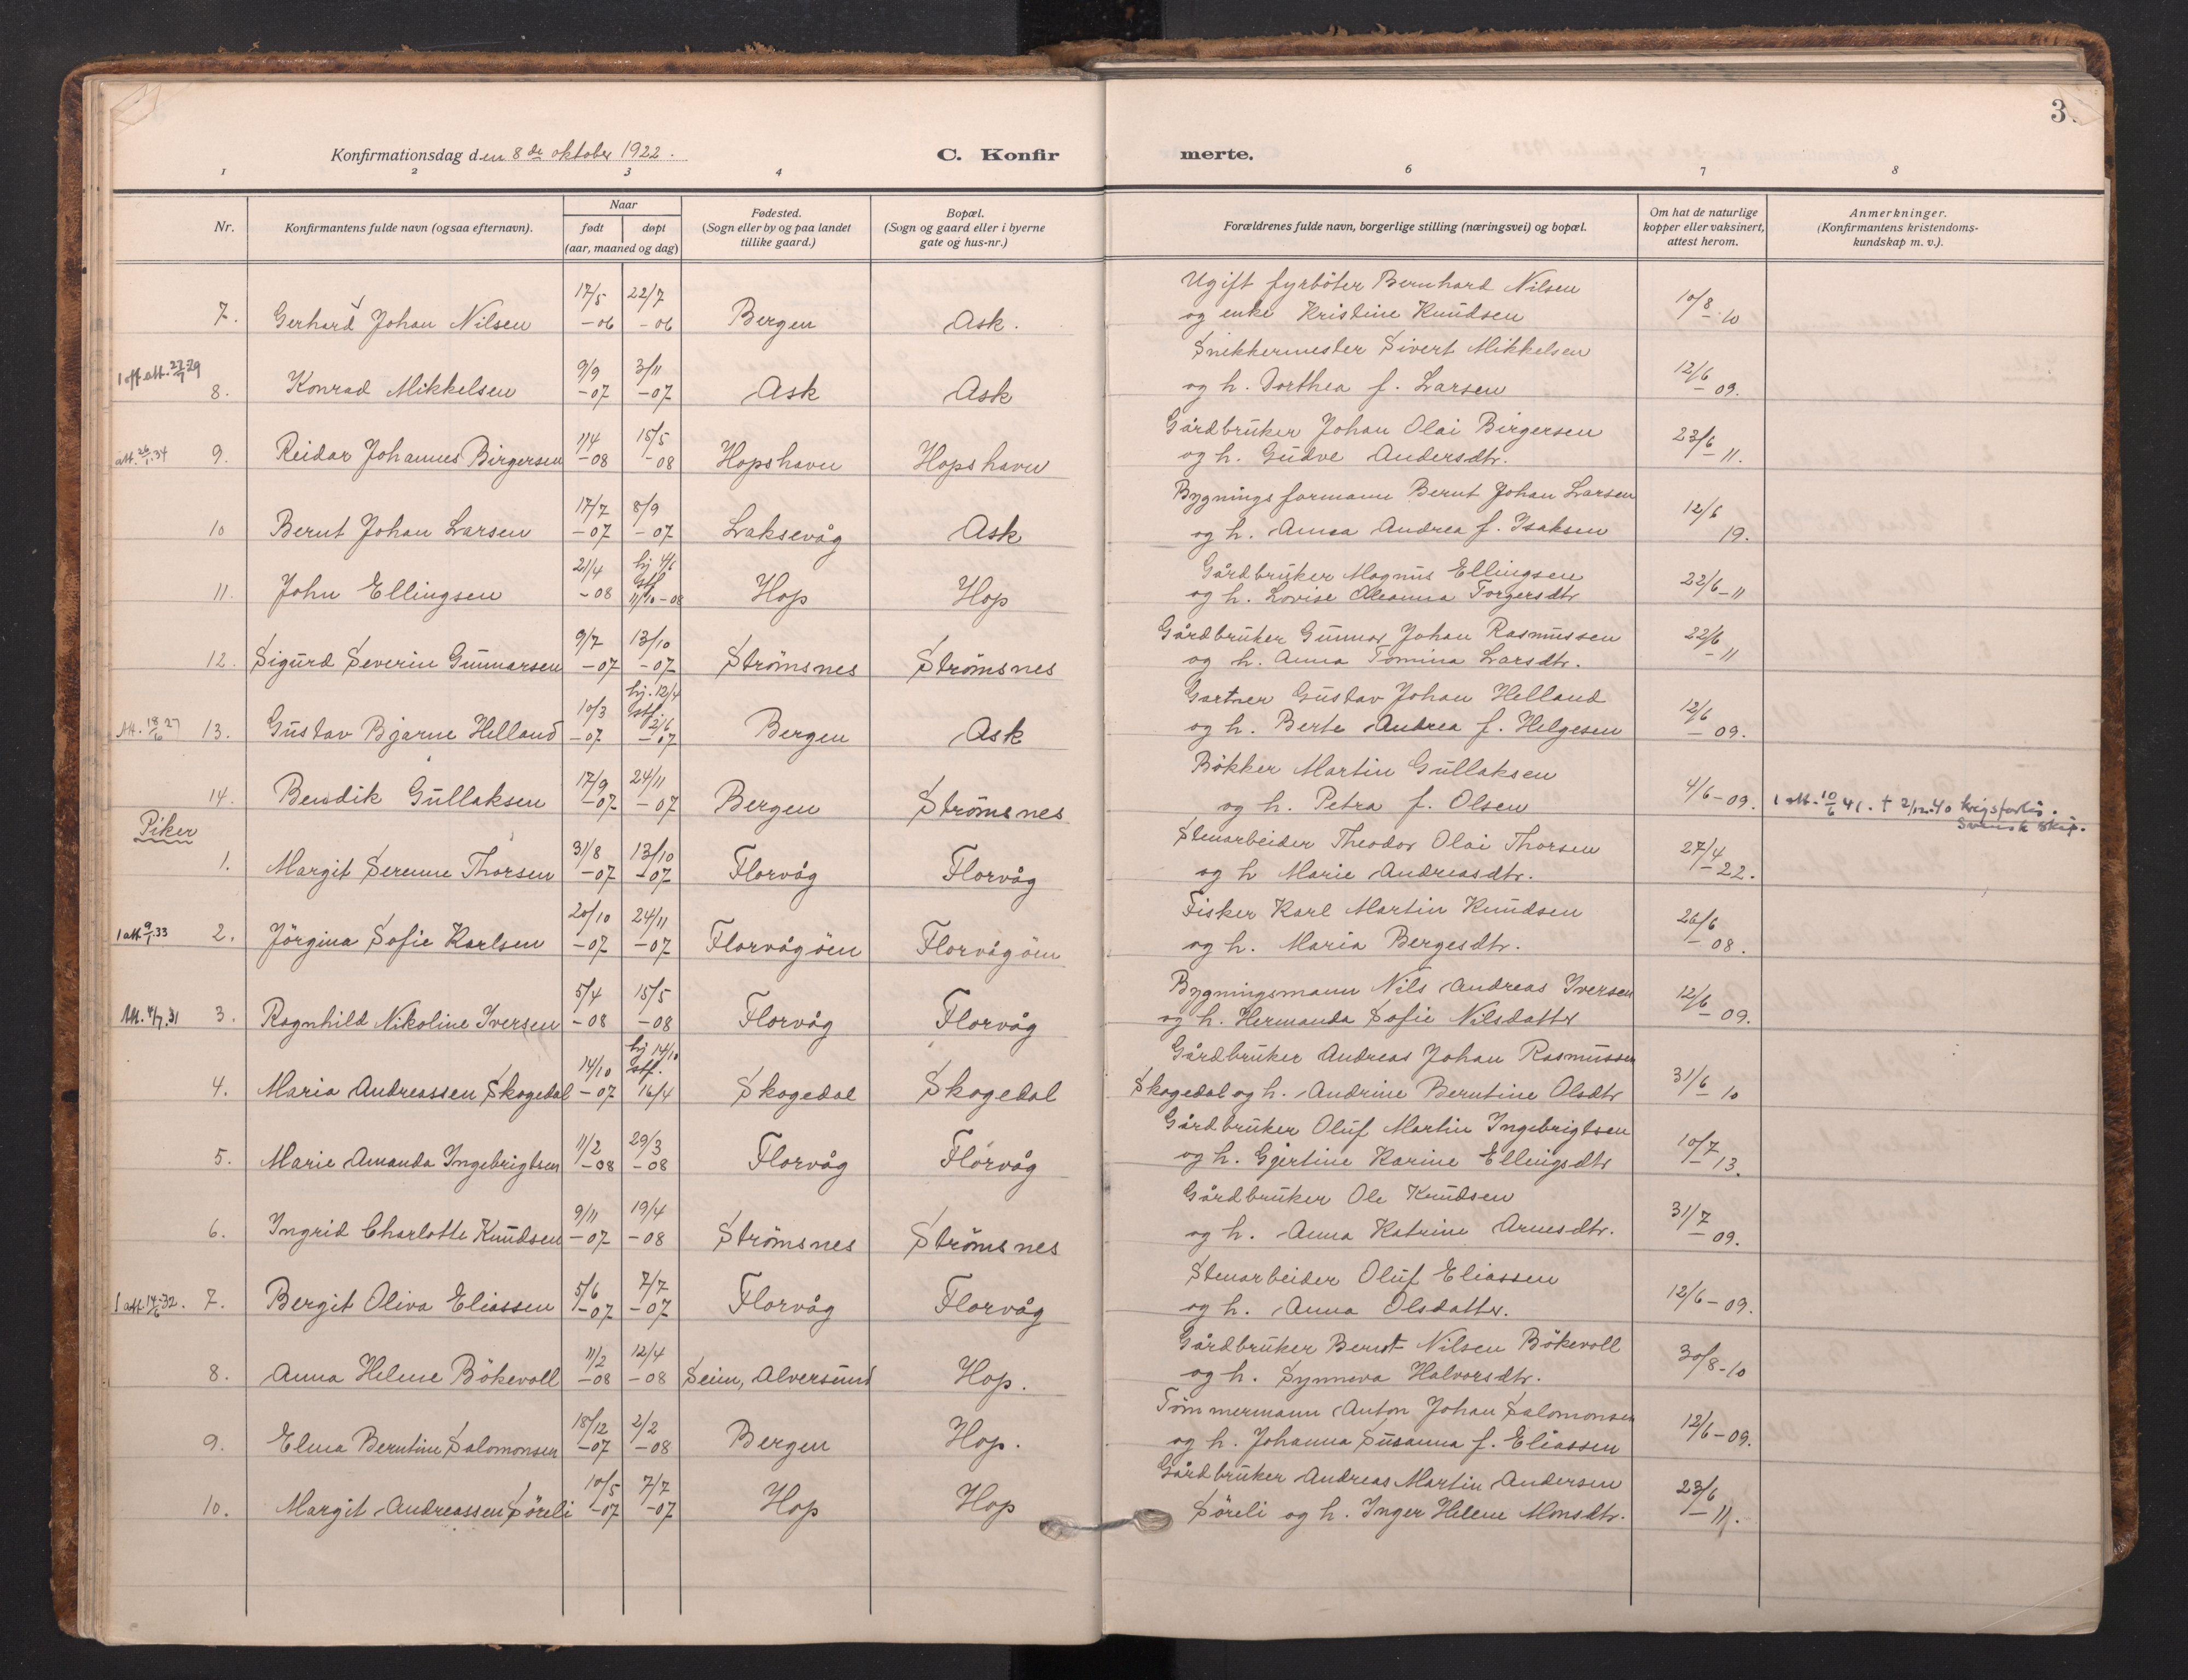 3.
Konfirmationsdag den 8de oktober 1922.
C. Konfir merte.
1 2 3 4 6 7 8
Nr. Konfirmantens fulde navn (ogsaa efternavn). Naar født døpt (aar, maaned og dag) Fødested. (Sogn eller by og paa landet tillike gaard.) Bopæl. (Sogn og gaard eller i byerne gate og hus-nr.) Forældrenes fulde navn, borgerlige stilling (næringsvei) og bopæl. Om hat de naturlige kopper eller vaksinert, attest herom. Anmerkninger. (Konfirmantens kristendoms-kundskap m. v.).
7. Gerhard Johan Nilsen 17/5 -06 22/7 -06 Bergen Ask. Ugift fyrböter Bernhard Nilsen
og enke Kristine Knudsen 10/8 -10
8. Konrad Mikkelsen 9/9 -07 3/11 -07 Ask Ask Snikkermester Sivert Mikkelsen
og h. Dorthea f. Larsen 12/6 -09.
att. 26/1.34 9. Reidar Johannes Birgersen 11/4 -08 15/5 -08 Hopshavn Hopshavn Gårdbruker Johan Olai Birgersen
og h. Gudve Andersdtr. 23/6 -11.
10 Bernt Johan Larsen 17/7 -07 8/9 -07 Laksevåg Ask Bygningsformann Bernt Johan Larsen
og h. Anna Andrea f. Isaksen 12/6 19.
11. John Ellingsen 21/4 -08 hj 4/6 stf 11/10-08 Hop Hop Gårdbruker Magnus Ellingsen
og h. Lovise Oleanna Torgersdtr 22/6-11
12. Sigurd Severin Gunnarsen 9/7 -07 13/10 -07 Strömsnes Strömsnes Gårdbruker Gunnar Johan Rasmussen
og h. Anna Tomina Larsdtr. 22/6 -11
Att. 18/6 27 13. Gustav Bjarne Helland 10/3 -07 hj. 12/4 stf. 2/6 -07 Bergen Ask Gartner Gustav Johan Helland
og h. Berte Andrea f. Helgesen 12/6 -09.
14. Bendik Gullaksen 17/9 -07 24/11 -07 Bergen Strömsnes Bökker Martin Gullaksen
og h. Petra f. Olsen 4/6-09. 1 att. 10/6 41. † 2/12.40 krigsforlis.
Svensk skip.
Piker
1. Margit Serenne Thorsen 31/8 -07 13/10 -07 Florvåg Florvåg Stenarbeider Theodor Olai Thorsen
og h Marie Andreasdtr. 27/4 -22.
1 att 9/1.33 2. Jörgina Sofie Karlsen 20/10 -07 24/11 -07 Florvågöen Florvågöen Fisker Karl Martin Knudsen
og h. Maria Bergesdtr. 26/6 -08.
Att. 4/7.31 3. Ragnhild Nikoline Iversen 5/4 -08 15/5 -08 Florvåg Florvåg Bygningsmann Nils Andreas Iversen
og h. Hermanda Sofie Nilsdatter 12/6 -09.
4. Maria Andreassen Skogedal 14/10 -07 hj 14/10 stf. 16/4 Skogedal Skogedal Gårdbruker Andreas Johan Rasmussen
Skogedal og h. Andrine Berntine Olsdtr 31/6 -10
5. Marie Amanda Ingebrigtsen 11/2 -08 29/3 -08 Florvåg Florvåg Gårdbruker Oluf Martin Ingebrigtsen
og h. Gjertine Karine Ellingsdtr 10/7 -13.
6. Ingrid Charlotte Knudsen 9/11 -07 19/4 -08 Strömsnes Strömsnes Gårdbruker Ole Knudsen
og h. Anna Katrine Arnesdtr. 31/7 -09.
1 att 14/6-32. 7. Bergit Oliva Eliassen 5/6 -07 7/7 -07 Florvåg Florvåg Stenarbeider Oluf Eliassen
og h. Anna Olsdatter. 12/6-09.
8. Anna Helene Bökevoll 11/2 -08 12/4 -08 Seim, Alversund Hop. Gårdbruker Bernt Nilsen Bökevoll
og h. Synneva Halvorsdtr. 30/8-10
9. Elma Berntine Salomonsen 18/12 -07 2/2 -08 Bergen Hop. Tömmermann Anton Johan Salomonsen
og h. Johanna Susanna f. Eliassen 12/6-09.
10. Margit Andreassen Söreli 10/5 -07 7/7 -07 Hop Hop Gårdbruker Andreas Martin Andersen
Söreli og h. Inger Helene Monsdtr. 23/6 -11.